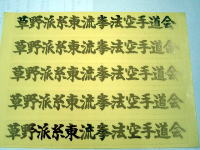 草野派糸東流拳法空手道会
草野派糸東流拳法空手道会
草野派糸東流拳法空手道会
草野派糸東流拳法空手道会
草野派糸東流拳法空手道会